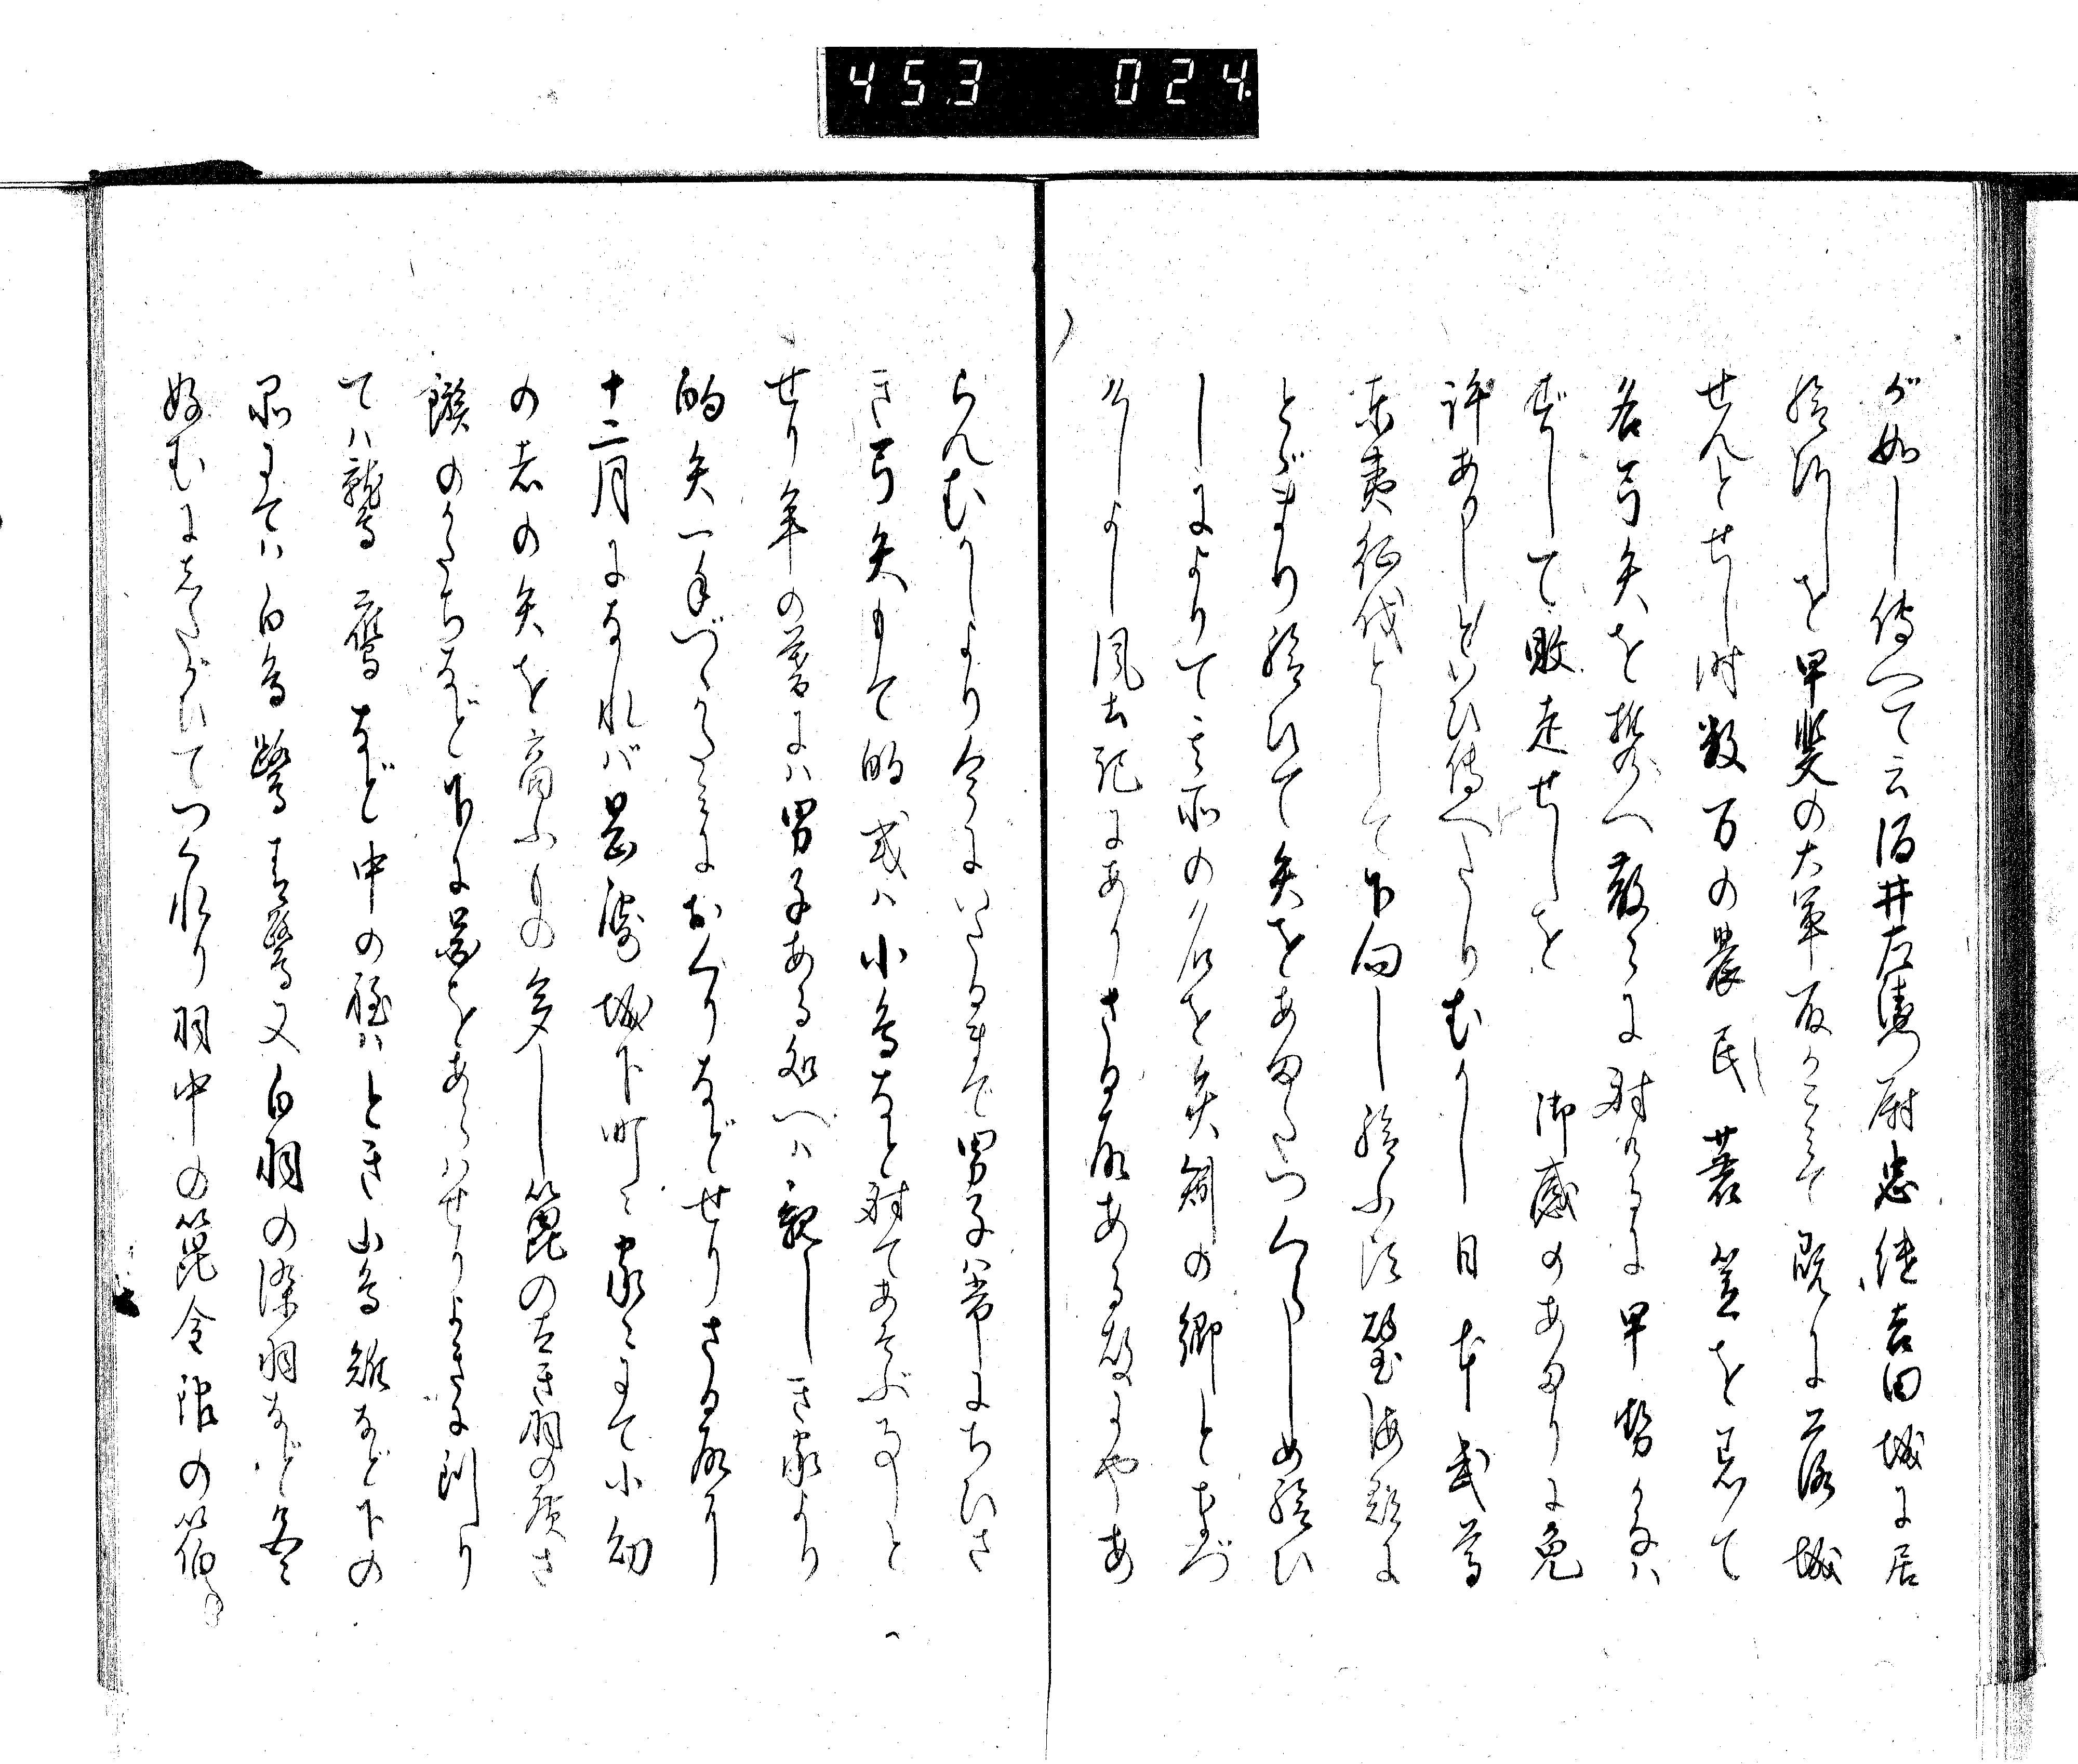 453 024
が如し傳へて云酒井左衛門尉忠次吉田城に居
給ひしを甲斐の大軍取かこみて既に落城
せんとせし時数万の農民蓑笠を着て
各弓矢を携へ敵に射けるに甲勢かなは
ずして敗走せしを 御感のあまりに免
許ありしといひ傳へたりむかし日本武尊
東夷征伐として下向し給ふ頃
とゞまり給ひて矢をあまたつくらしめ給ひ
しによりて其所の名を矢矧の郷となづ
けしよし風土記にありさる故ある故にやあ
らんむかしより今にいたるまで男子は常にちひさ
き弓矢もて的或は小鳥など射てあそぶ事と
せり年の暮には男子ある処へは親しき家より
的矢一手づゝかたみにおくりなどせりさる故に
十二月になれば岡崎城下町々家々にて小幼
の者の矢を商ふもの多し箆の古き羽の廣さ
鏃のかたちなど下に図をあらはせりよきに到り
ては鷲鷹など中の程はとき山鳥雉など下の
品にては白鳥鷺青鷺又白羽の染羽など各
好むにしたがひてつくれり羽中の箆金銀の箔